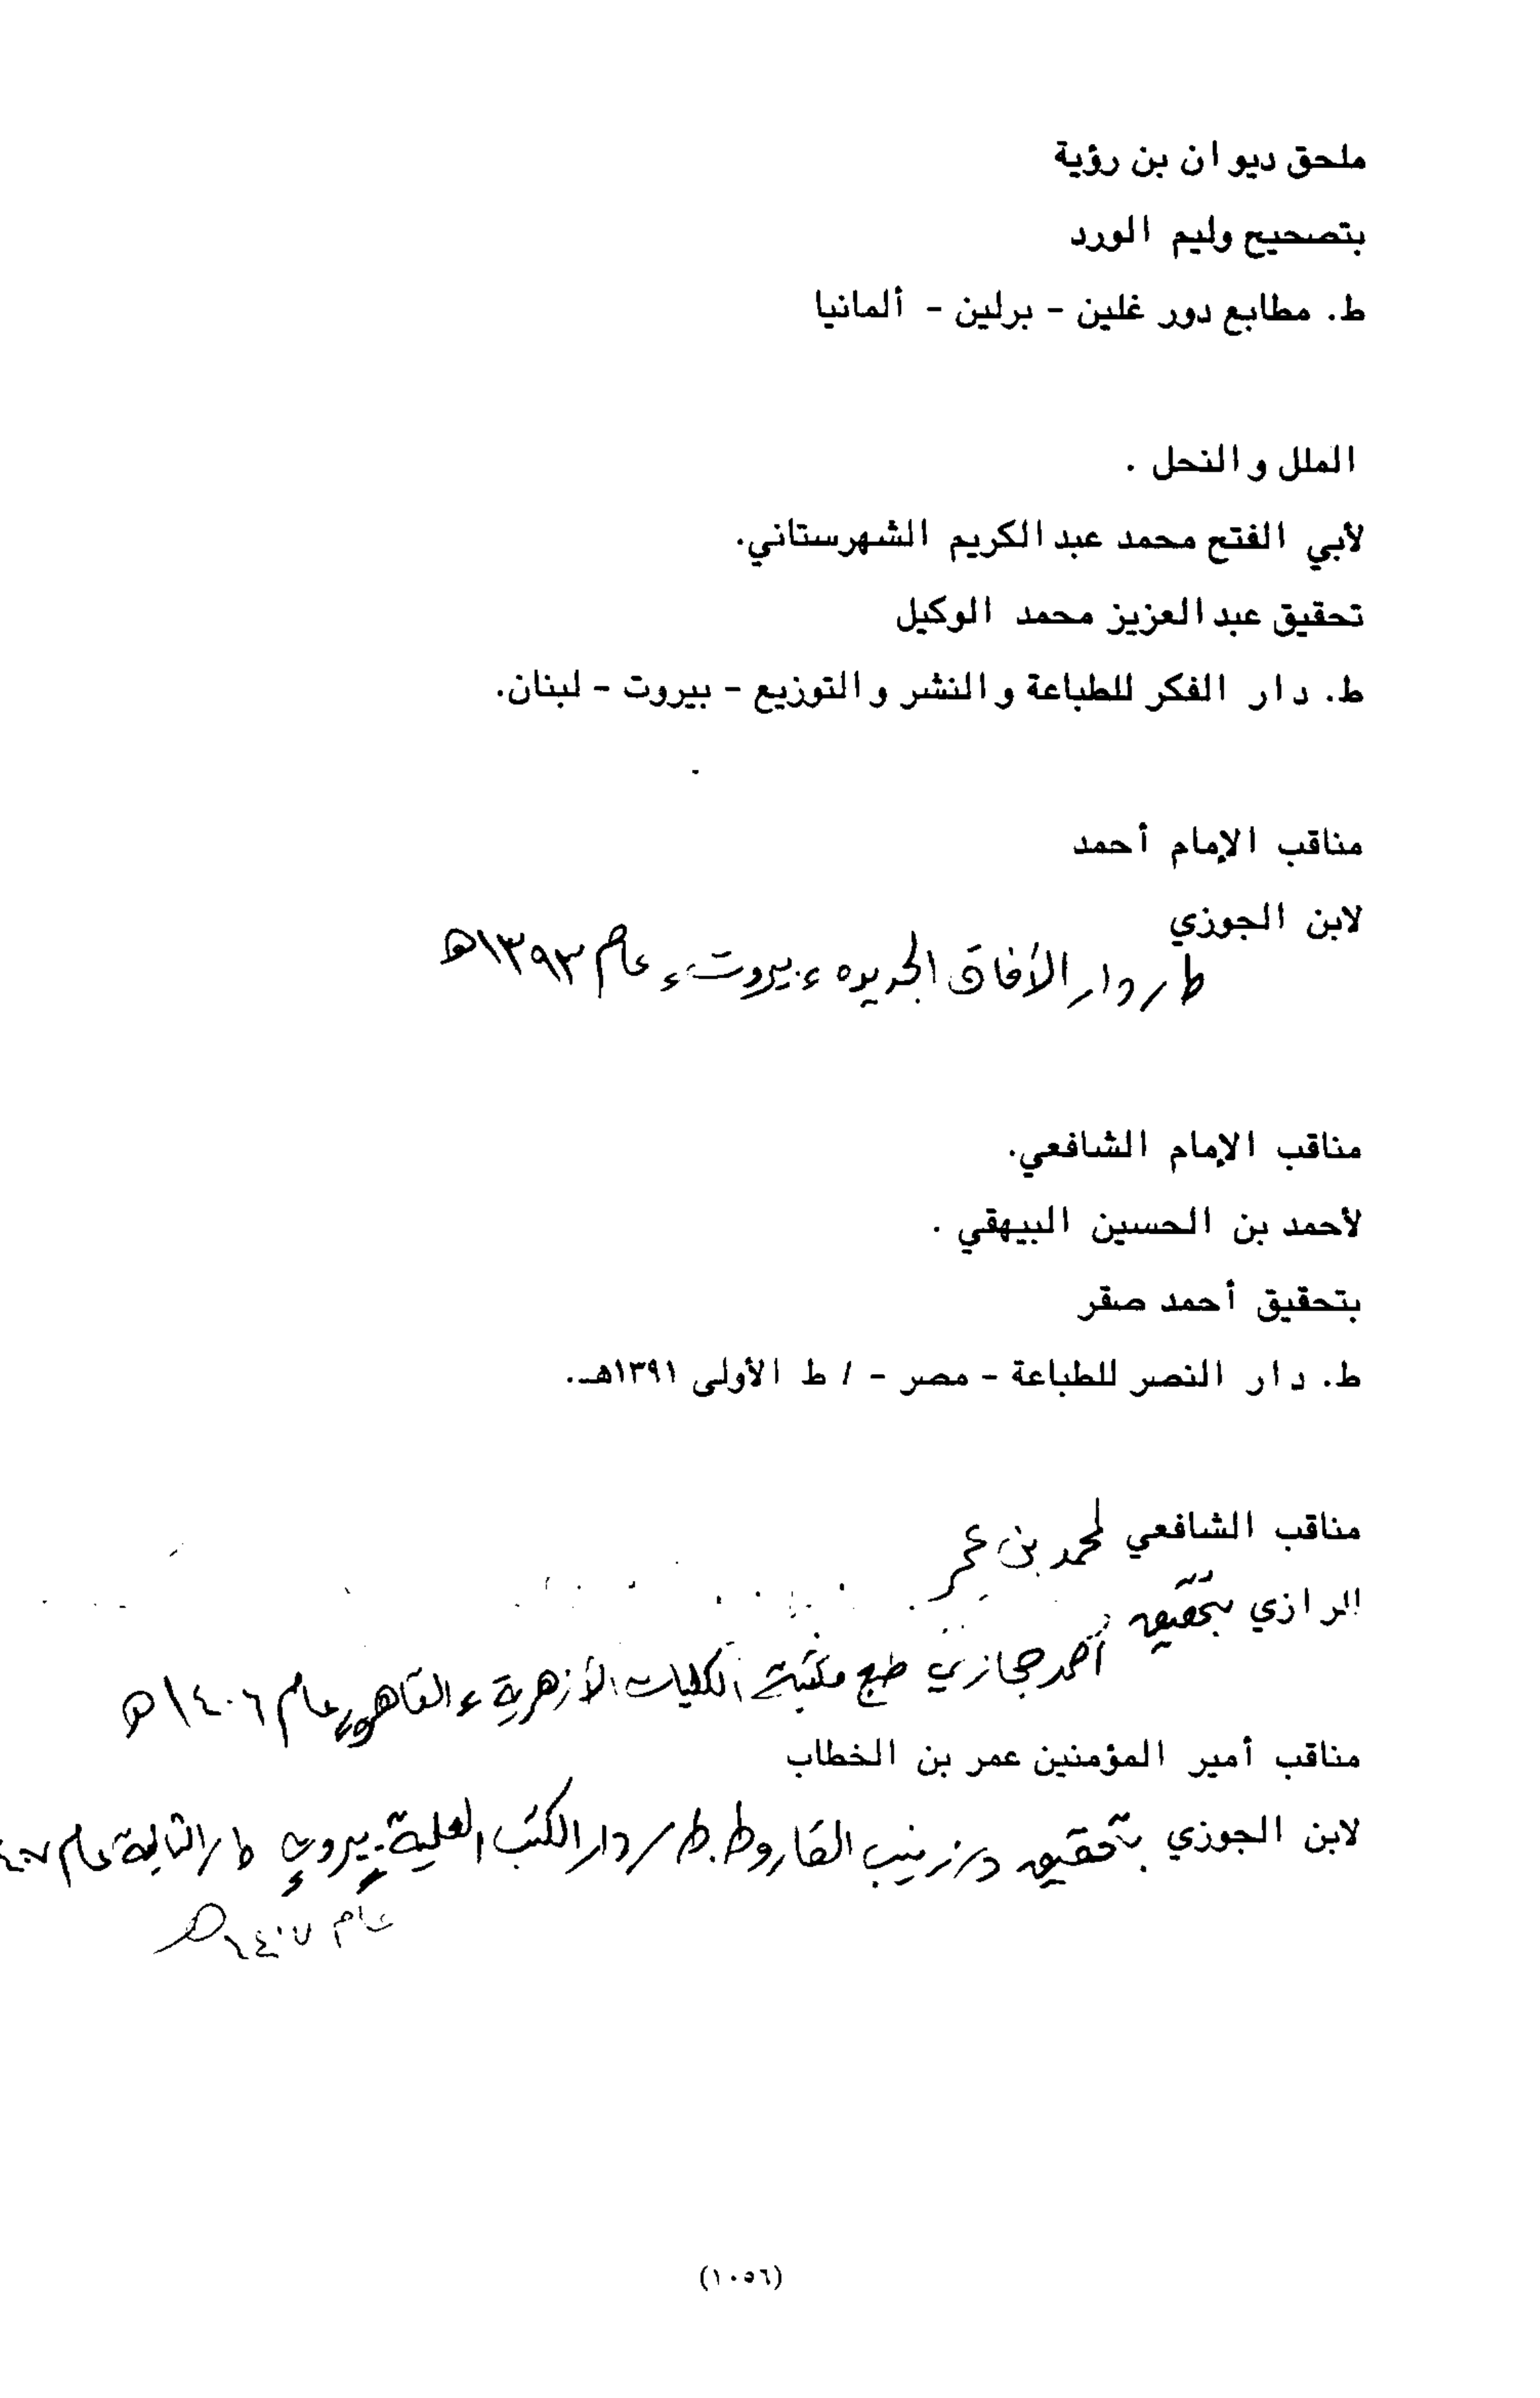 ملحق ديوان بن رؤية
بتصحيح وليم الورد
ط. مطابع دور غلين - برلين - ألمانيا
الملل والنحل .
لأبي الفتح محمد عبد الكريم الشهرستاني.
تحقيق عبد العزيز محمد الوكيل
ط. دار الفكر للطباعة والنشر والتوزيع - بيروت - لبنان.
مناقب الإمام أحمد
لابن الجوزي
ط/دار الأفاق الجديده ، بيروت ، عام ١٣٩٣ه
مناقب الإمام الشافعي.
لأحمد بن الحسين البيهقي .
بتحقيق أحمد صقر
ط. دار النصر للطباعة - مصر - / ط الأولى ١٣٩١هـ.
مناقب الشافعي لمحمد بن عمر
الرازي بتحقيق
أحمد حجازي طبع مكتبة الكليات الأزهرية ، القاهره، عام ١٤٠٦ه
مناقب أمير المؤمنين عمر بن الخطاب
لابن الجوزي بتحقيق د/زينب القاروط. ط/دار الكتب العلمية. بيروت ط/الثالثة عام
عام ١٤٠٧ه
(١٠٥٦)